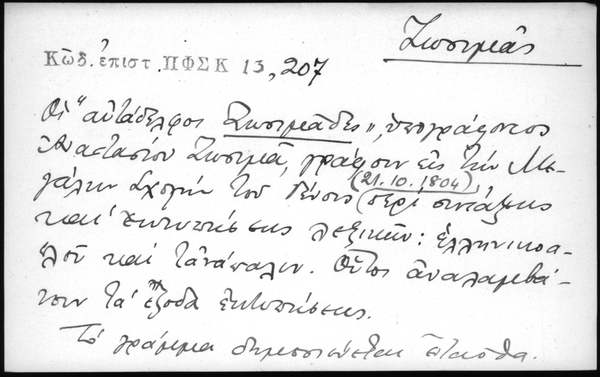 Ζωσιμᾶς
Κῶδ. ἐπιστ. ΠΦΣΚ 13, 207
Οἱ "αὐτάδελφοι Ζωσιμάδες", ὑπογράφοντος
Ἀναστασίου Ζωσιμᾶ, γράφουν εἰς τὴν Με-
γάλην Σχολὴν τοῦ Γένους (21.10.1804) περὶ συντάξεως
καὶ ἐκτυπώσεως λεξικῶν: ἑλληνικοα-
πλοῦ καὶ τἀνάπαλιν. Οὗτοι ἀναλαμβά-
νουν τὰ ἔξοδα ἐκτυπώσεως.
Τὸ γράμμα δημοσιεύεται ἐνταῦθα.